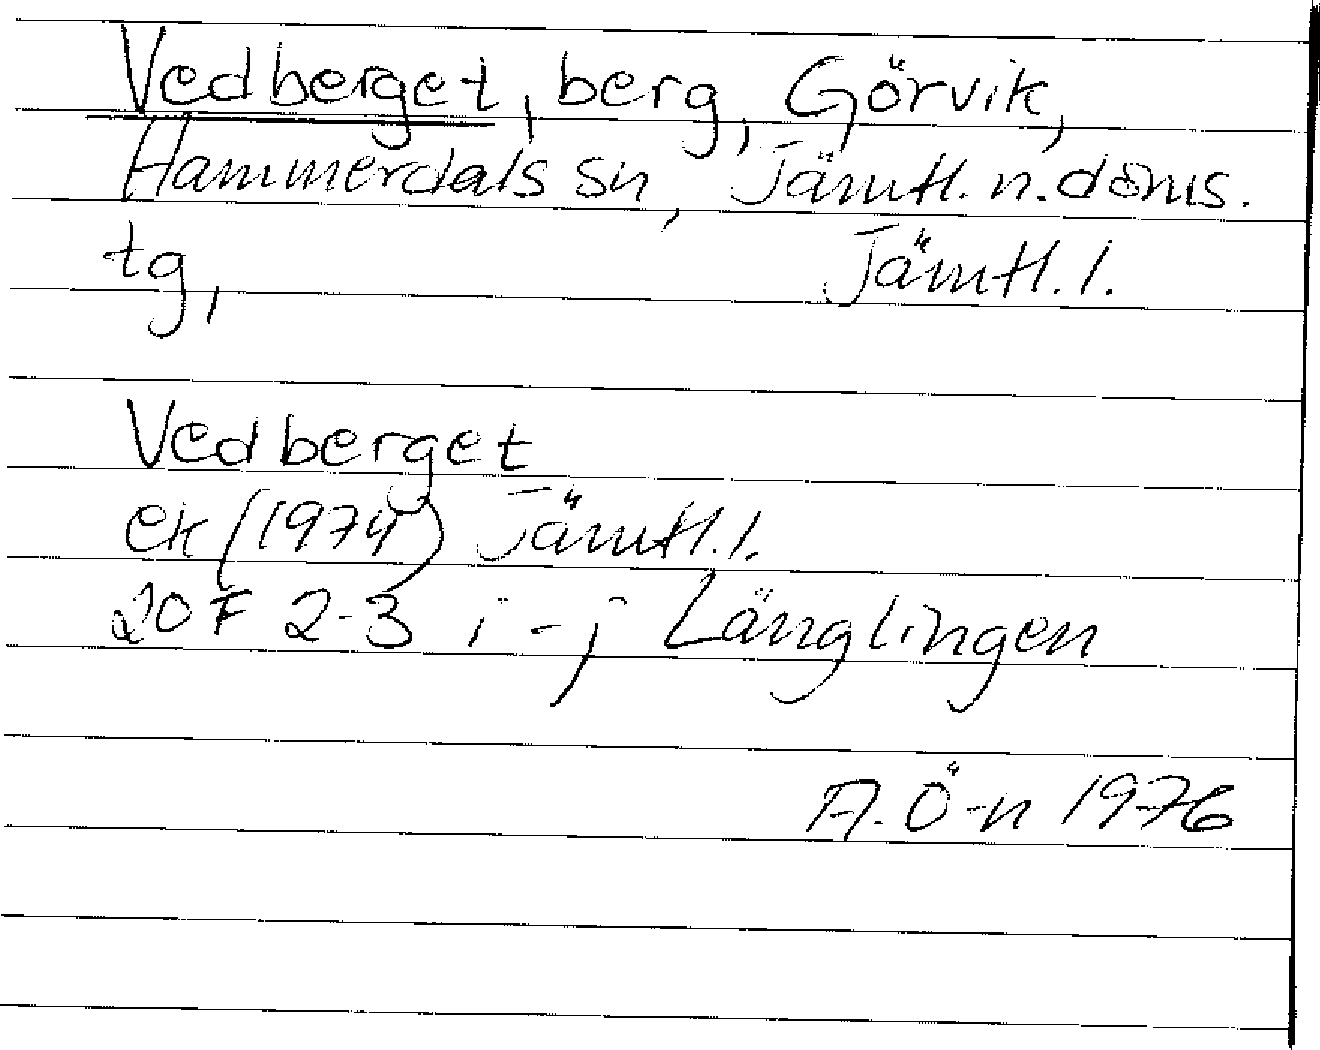 Vedberget, berg, Görvik,
Hammerdals sn, Jämtl. n. doms.
tg, Jämtl. l.
Vedberget
ek (1974) Jämtl. l.
20 F 2-3 i-j Länglingen
A. Ö-n 1976